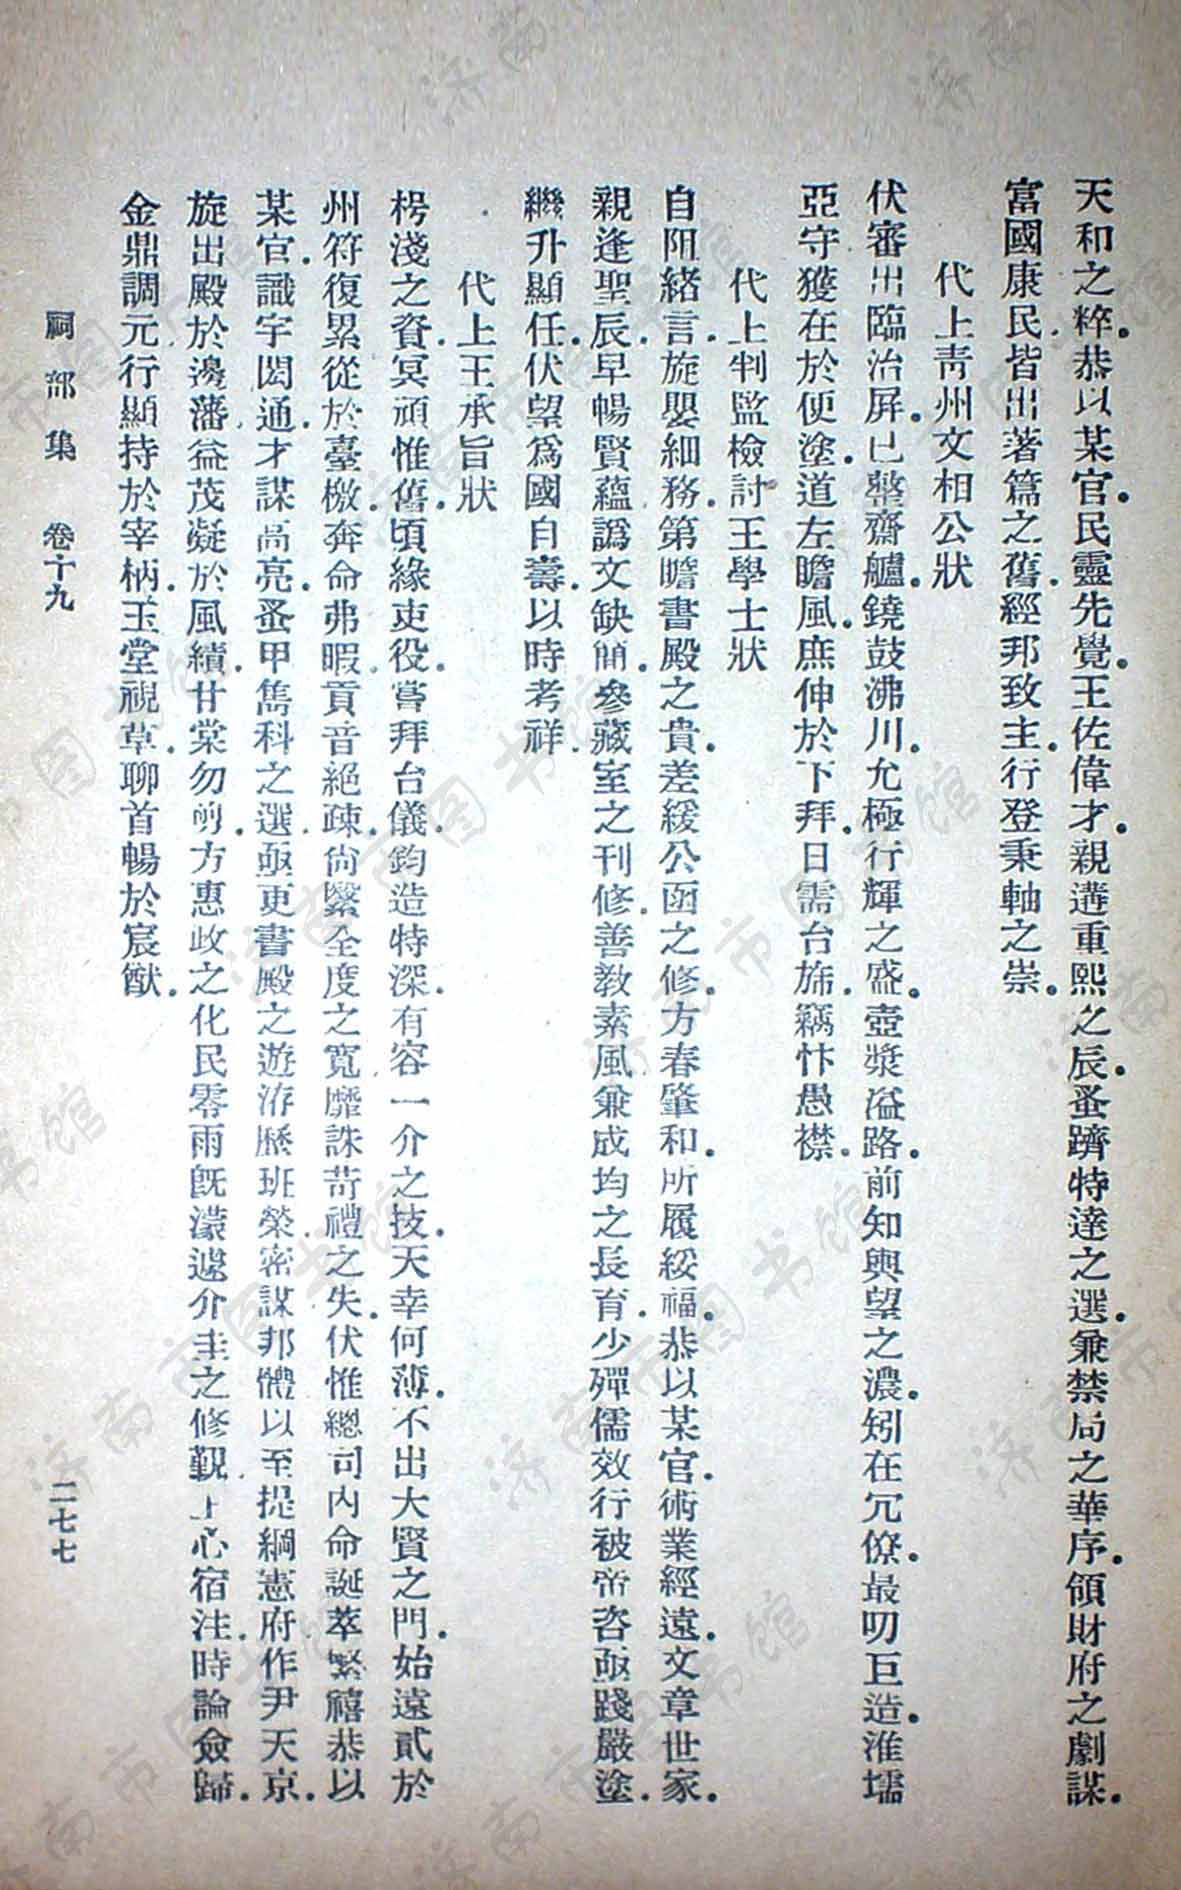 天和之粹．恭以某官．民靈先覺．王佐偉才．親遘重熙之辰．蚤躋特達之選．兼禁局之華序．領財府之劇謀．
富國康民．皆出著篇之舊．經邦致主．行登秉軸之崇．
代上靑州文相公狀
伏審出臨治屏．已整齊艫．鐃鼓沸川．允極行輝之盛．壺漿溢路．前知輿望之濃．矧在冗僚．最叨巨造．淮壖
亞守．獲在於便塗．道左瞻風．庶伸於下拜．日需台旆．竊忭愚襟．
代上判監檢討王學士狀
自阻緒言．旋嬰細務．第瞻書殿之貴．差緩公函之修．方春肇和．所履綏福．恭以某官．術業經遠．文章世家．
親逢聖辰．早暢賢蘊．譌文缺簡．參藏室之刊修．善教素風．兼成均之長育．少殫儒效．行被帝咨．亟踐嚴塗．
繼升顯任．伏望爲國自壽．以時考祥．
代上王承旨狀
枵淺之資．冥頑惟舊．頃緣吏役．嘗拜台儀．鈞造特深．有容一介之技．天幸何薄．不出大賢之門．始遠貳於
州符．復累從於臺檄．奔命弗暇．貢音絕疎．尙繄全度之寬．靡誅苛禮之失．伏惟總司內命．誕萃繁禧．恭以
某官．識宇閎通．才謀高亮．蚤甲雋科之選．亟更書殿之遊．洊歷班榮．密謀邦體．以至提綱憲府．作尹天京．
旋出殿於邊藩．益茂凝於風績．甘棠勿剪．方惠政之化民．零雨旣濛．遽介圭之修覲．上心宿注．時論僉歸．
金鼎調元．行顯持於宰柄．玉堂視草．聊首暢於宸猷．
祠部集 卷十九 二七七
济南市图书馆